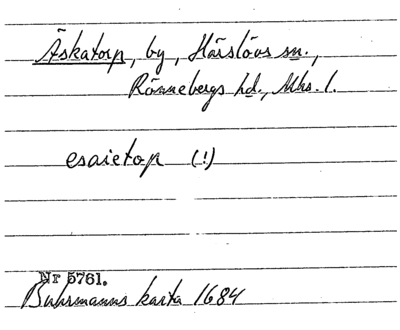 Äskatorp, by, Härslövs sn.,
Rönnebergs hd., Mhs. l.
esaietop (!)
Nr 5761.
Buhrmanns karta 1684